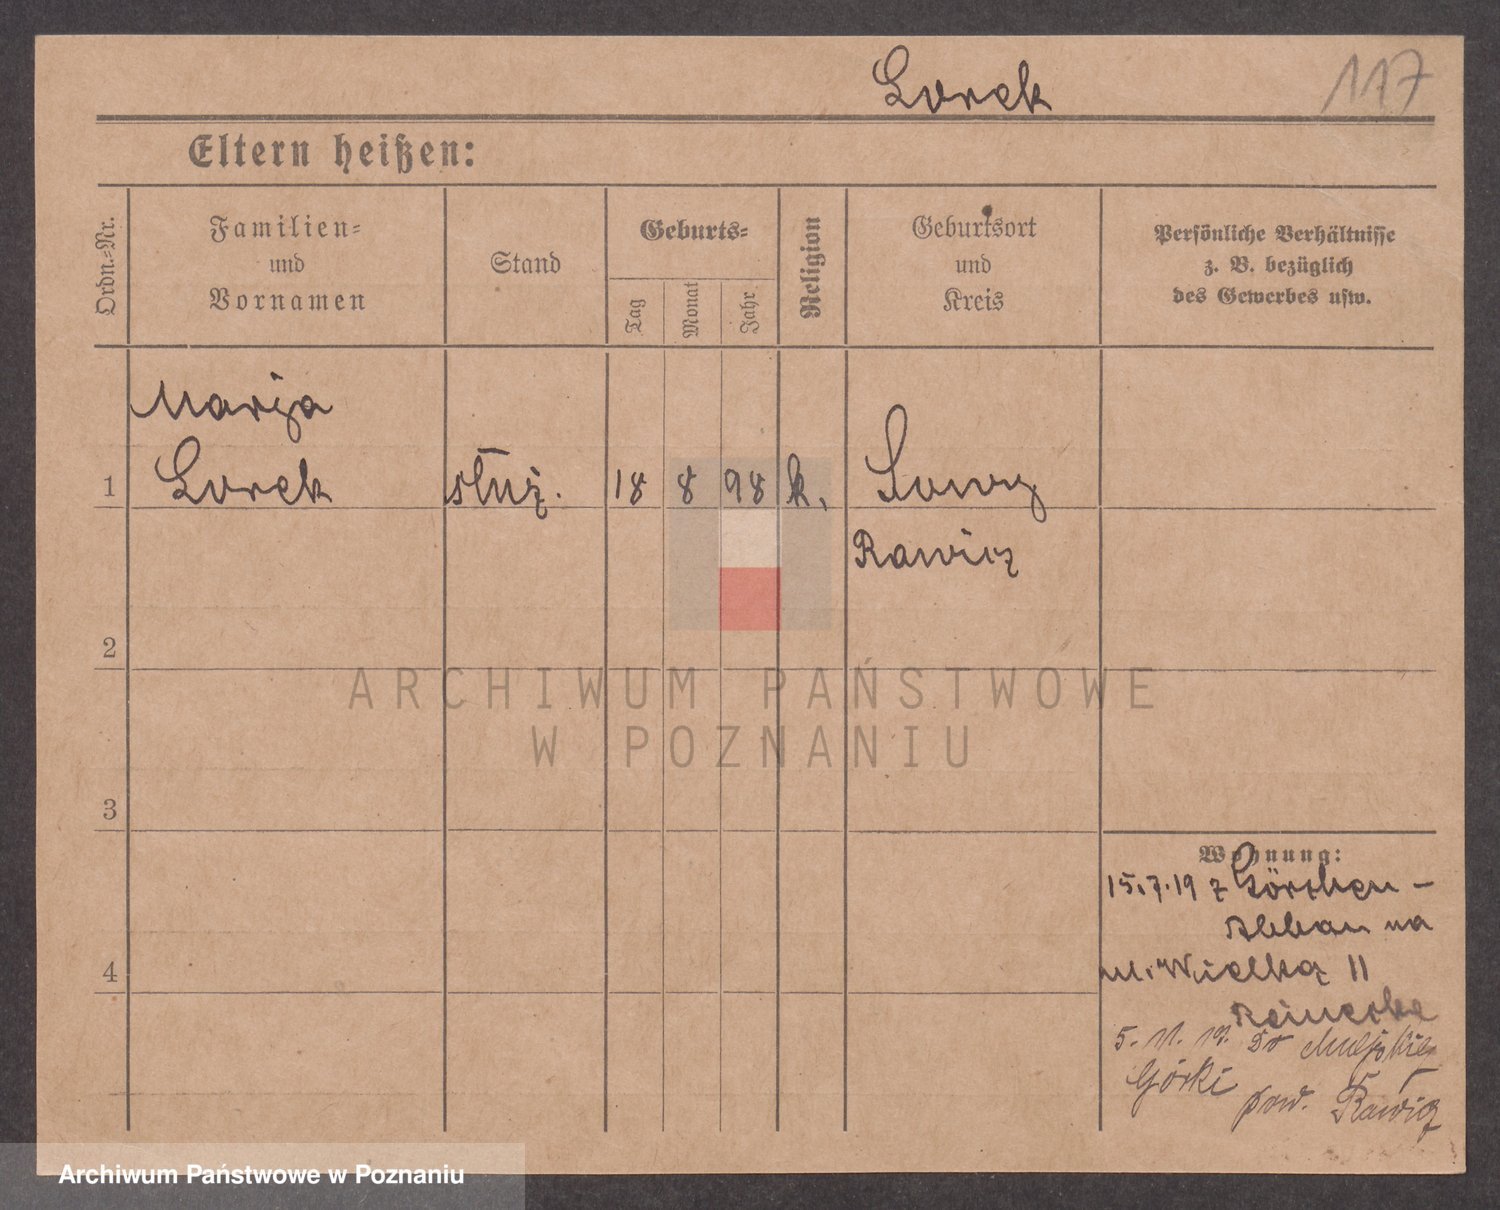 Lorek
117
Eltern heißen:
Ordn.-Nr.
Familien-
und
Vornamen
Stand
Geburts-
Tag
Monat
Jahr
Religion
Geburtsort
und
Kreis
Persönliche Verhältnisse
z. B. bezüglich
des Gewerbes usw.
Marja
1 Lorek służ. 18 8 98 k.
Rawicz
2
ARCHIWUM PAŃSTWOWE
W POZNANIU
3
Wohnung:
15.7.19 z Görchen-
na
4
ul. Wielką 11
Reinecke
5. 11. 19. Do Miejskiej
Górki pow. Rawicz
Archiwum Państwowe w Poznaniu